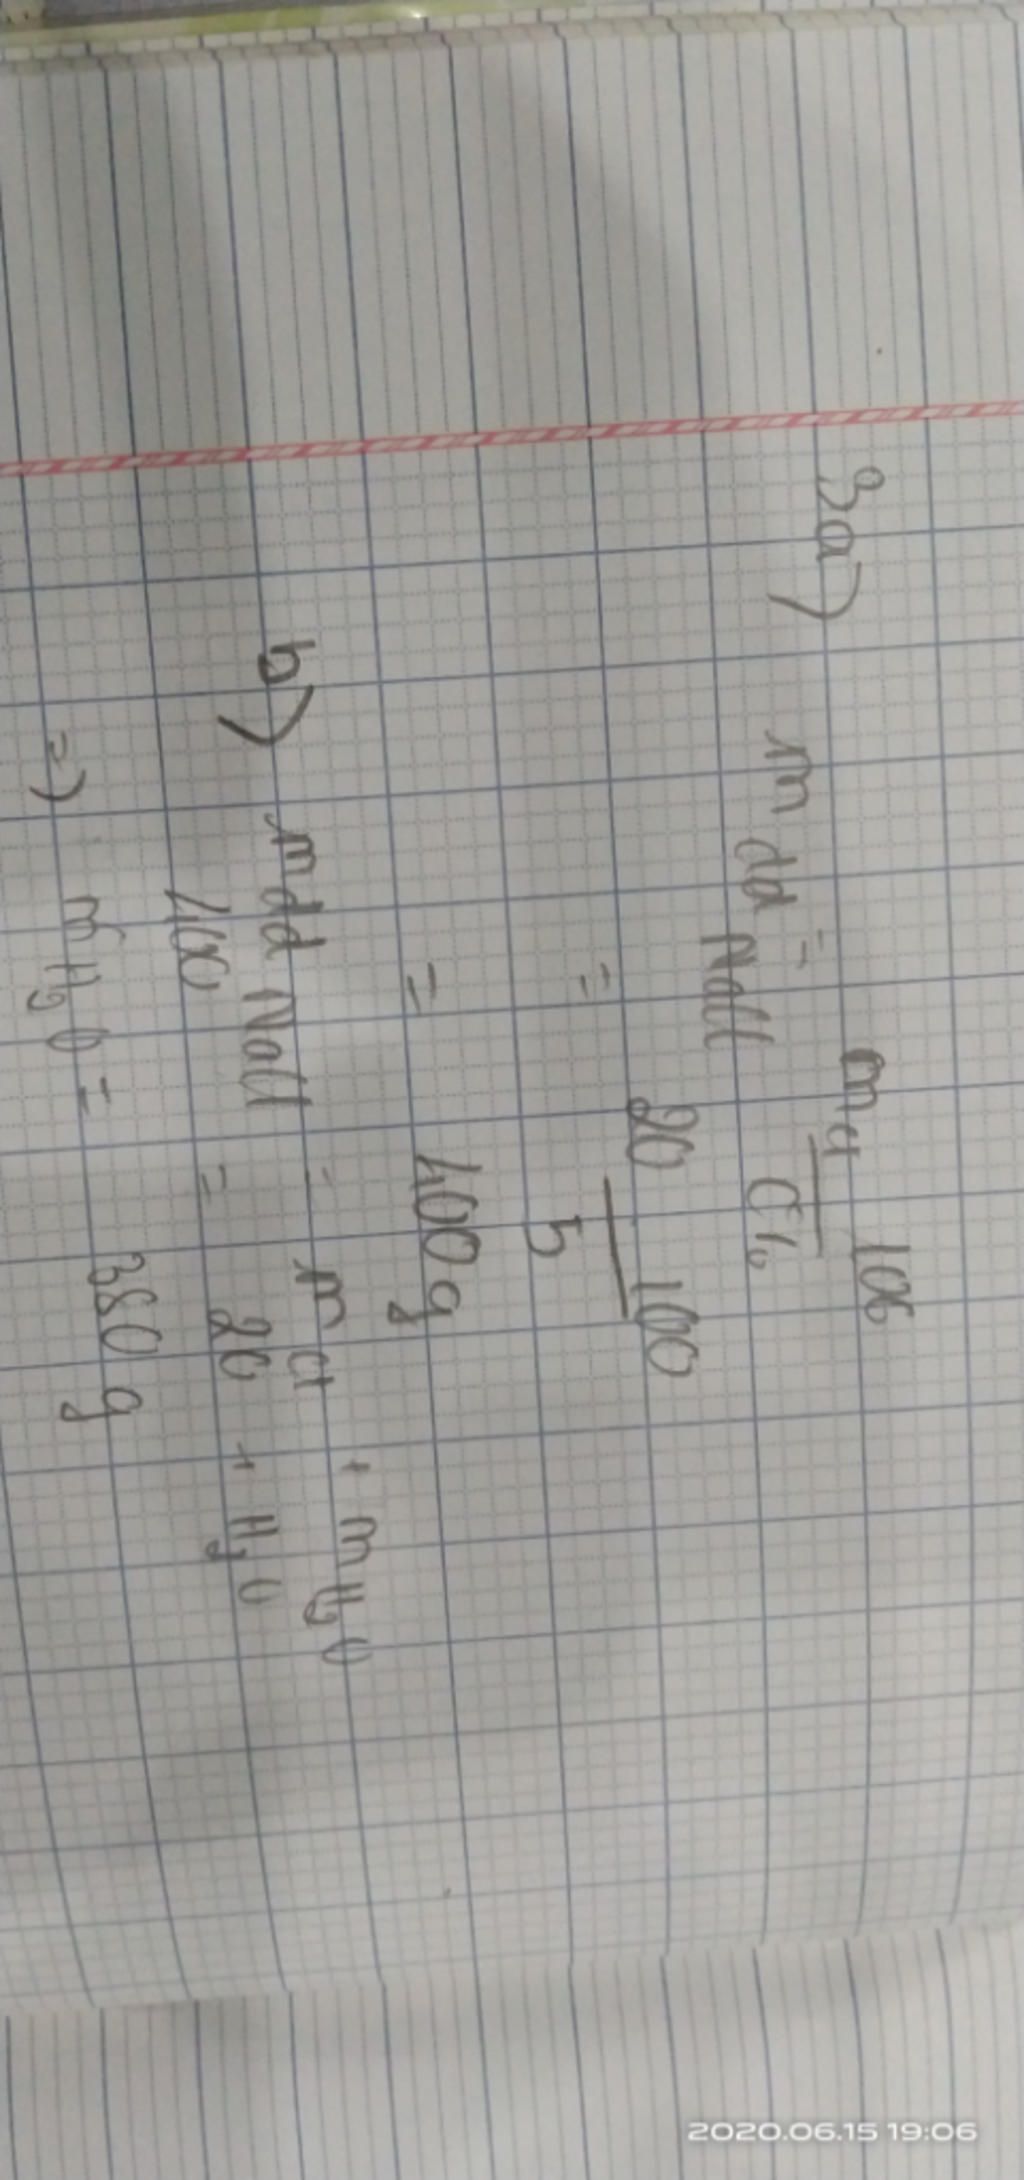 3a) m dd NaCl = mct 100 / C%
= 20 100 / 5
= 400 g
b) mdd NaCl = m ct + m H2O
400 = 20 + H2O
=) m H2O = 380 g
2020.06.15 19:06